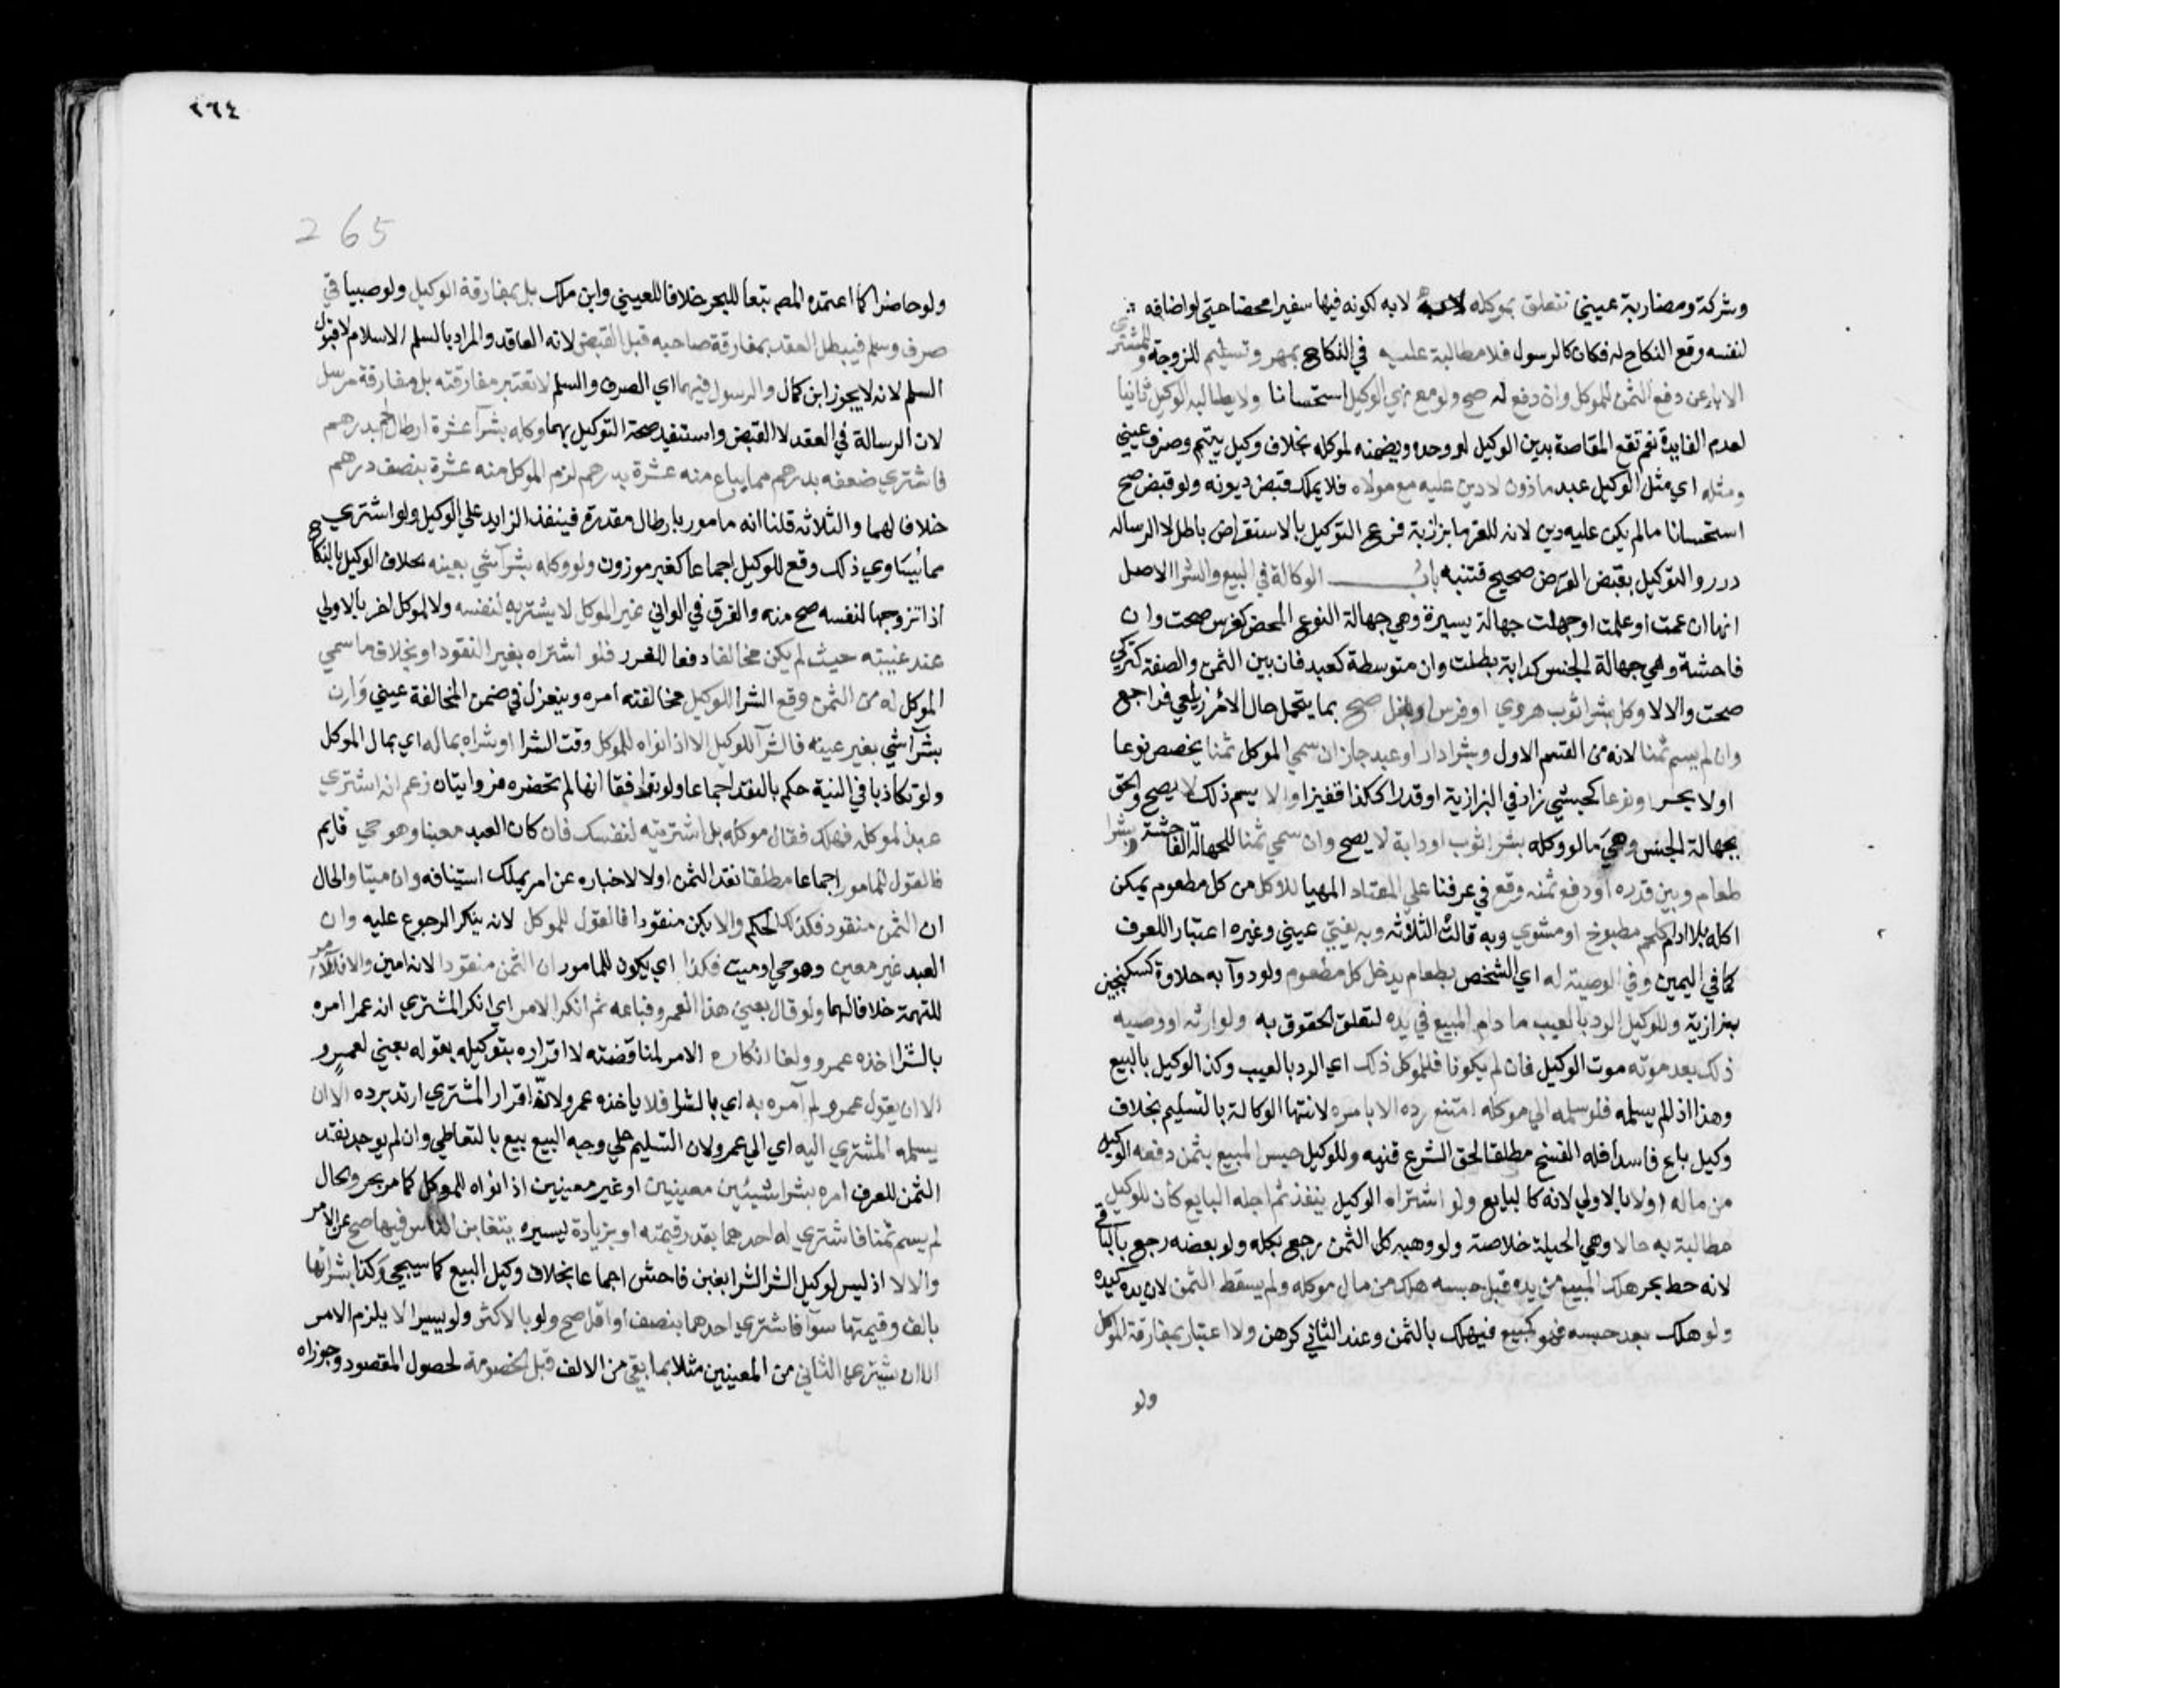 وشركة ومضاربة عيني تتعلق بموكله لا به لكونه فيها سفيرا محضا حتى لو اضافه
لنفسه وقع النكاح له فكان كالرسول فلا مطالبة عليه في النكاح بمهر وتسليم للزوجة وللمشتري
الاباء عن دفع الثمن للموكل وان دفع له صح ولو مع نهي الوكيل استحسانا ولا يطالبه الوكيل ثانيا
لعدم الفايدة نعم تقع المقاصة بدين الوكيل لو وحده ويضمنه لموكله بخلاف وكيل يتيم وصرف عيني
ومثله اي مثل الوكيل عبد ماذون لا دين عليه مع مولاه فلا يملك قبض ديونه ولو قبض صح
استحسانا ما لم يكن عليه دين لانه للغرما بزازية فرع التوكيل بالاستقراض باطل لا الرسالة
درر والتوكيل بقبض القرض صحيح فتنبه باب الوكالة في البيع والشرا الاصل
انها ان عمت او علمت او جهلت جهالة يسيرة وهي جهالة النوع المحض كفرس صحت وان
فاحشة وهي جهالة الجنس كدابة بطلت وان متوسطة كعبد فان بين الثمن والصفة كتركي
صحت والا لا وكل بشرا ثوب هروي او فرس او بغل صح بما يتحمل حال الامر زيلعي فراجع
وان لم يسم ثمنا لانه من القسم الاول وبشرا دار او عبد جاز ان سمي الموكل ثمنا يخصص نوعا
او لا بحر او نوعا كحبشي زاد في البزازية او قدرا ككذا قفيزا والا يسم ذلك لا يصح والحق
بجهالة الجنس وهي ما لو وكله بشرا ثوب او دابة لا يصح وان سمي ثمنا للجهالة الفاحشة وبشرا
طعام وبين قدره او دفع ثمنه وقع في عرفنا علي المعتاد المهيا للاكل من كل مطعوم يمكن
اكله بلا ادام كلحم مطبوخ او مشوي وبه قالت الثلاثة وبه يفتي عيني وغيره اعتبارا للعرف
كما في اليمين وفي الوصية له اي الشخص بطعام يدخل كل مطعوم ولو دوآ به حلاوة كسكنجبين
بزازية وللوكيل الرد بالعيب ما دام المبيع في يده لتعلق الحقوق به ولوارثه او وصيه
ذلك بعد موته موت الوكيل فان لم يكونا فللموكل ذلك اي الرد بالعيب وكذا الوكيل بالبيع
وهذا اذا لم يسلمه فلو سلمه الي موكله امتنع رده الا بامره لانتها الوكالة بالتسليم بخلاف
وكيل باع فاسدا فله الفسخ مطلقا لحق الشرع قنيه وللوكيل حبس المبيع بثمن دفعه الوكيل
من ماله او لا بالاولي لانه كالبايع ولو اشتراه الوكيل بنقد ثم اجله البايع كان للوكيل
مطالبة به حالا وهي الحيلة خلاصة ولو وهبه كل الثمن رجع بكله ولو بعضه رجع بالباقي
لانه حط بحر هلك المبيع من يده قبل حبسه هلك من مال موكله ولم يسقط الثمن لان يده كيده
ولو هلك بعد حبسه فهو كمبيع فيهلك بالثمن وعند الثاني كرهن ولا اعتبار بمفارقة الموكل
ولو
٢٦٤
265
ولو حاضرا كما اعتمده المصـ تبعا للبحر خلافا للعيني وابن ملك بل بمفارقة الوكيل ولو صبيا في
صرف وسلم فيبطل العقد بمفارقة صاحبه قبل القبض لانه العاقد والمراد بالسلم الاسلام لا قبول
السلم لانه لا يجوز ابن كمال والرسول فيهما اي الصرف والسلم لا تعتبر مفارقته بل مفارقة مرسل
لان الرسالة في العقد لا القبض واستفيد صحة التوكيل بهما وكله بشرآ عشرة ارطال لحم بدرهم
فاشتري ضعفه بدرهم مما يباع منه عشرة بدرهم لزم الموكل منه عشرة بنصف درهم
خلافا لهما والثلاثة قلنا انه مامور بارطال مقدرة فينفذ الزايد علي الوكيل ولو اشتري
مما يساوي ذلك وقع للوكيل اجماعا كغير موزون ولو وكله بشرآ شي بعينه بخلاف الوكيل بالنكاح
اذا تزوجها لنفسه صح منه والفرق في الواني غير الموكل لا يشتريه لنفسه ولا لموكل اخر بالاولي
عند غيبته حيث لم يكن مخالفا دفعا للغرر فلو اشتراه بغير النقود او بخلاف ما سمي
الموكل له من الثمن وقع الشرا للوكيل مخالفته امره وينعزل في ضمن المخالفة عيني وان
بشرآ شي بغير عينه فالشرآ للوكيل الا اذا نواه للموكل وقت الشرا او شراه بماله اي بمال الموكل
ولو تكاذبا في النية حكم بالنقد اجماعا ولو توافقا انها لم تحضره فروايتان زعم انه اشتري
عبدا لموكله فهلك فقال موكله بل اشتريته لنفسك فان كان العبد معينا وهو حي قايم
فالقول للمامور اجماعا مطلقا نقد الثمن او لا لاخباره عن امر يملك استينافه وان ميتا والحال
ان الثمن منقود فكذا الحكم والا يكن منقودا فالقول للموكل لانه ينكر الرجوع عليه وان
العبد غير معين وهو حي او ميت فكذا اي يكون للمامور ان الثمن منقودا لانه امين والا فللآمر
للتهمة خلافا لهما ولو قال بعني هذا العمرو فباعه ثم انكر الامر اي انكر المشتري ان عمرا امره
بالشرا اخذه عمرو ولغا انكاره الامر لمناقضته لاقراره بتوكيله بقوله بعني لعمرو
الا ان يقول عمرو لم آمره به اي بالشرا فلا ياخذه عمرو لان اقرار المشتري ارتد برده الا ان
يسلمه المشتري اليه اي الي عمرو لان التسليم علي وجه البيع بيع بالتعاطي وان لم يوجد نقد
الثمن للعرف امره بشرا شيئين معينين او غير معينين اذا نواه للموكل كما مر بحر والحال
لم يسم ثمنا فاشتري له احدهما بقدر قيمته او بزيادة يسيره يتغابن الناس فيها صح عن الامر
والا لا اذ ليس لوكيل الشرا الشرا بغبن فاحش اجماعا بخلاف وكيل البيع كما سيجي وكذا بشرائها
بالف وقيمتها سوآ فاشتري احدهما بنصف او اقل صح ولو بالاكثر ولو يسيرا لا يلزم الامر
الا ان يشتري الثاني من المعينين مثلا بما بقي من الالف قبل الخصومة لحصول المقصود وجوزاه